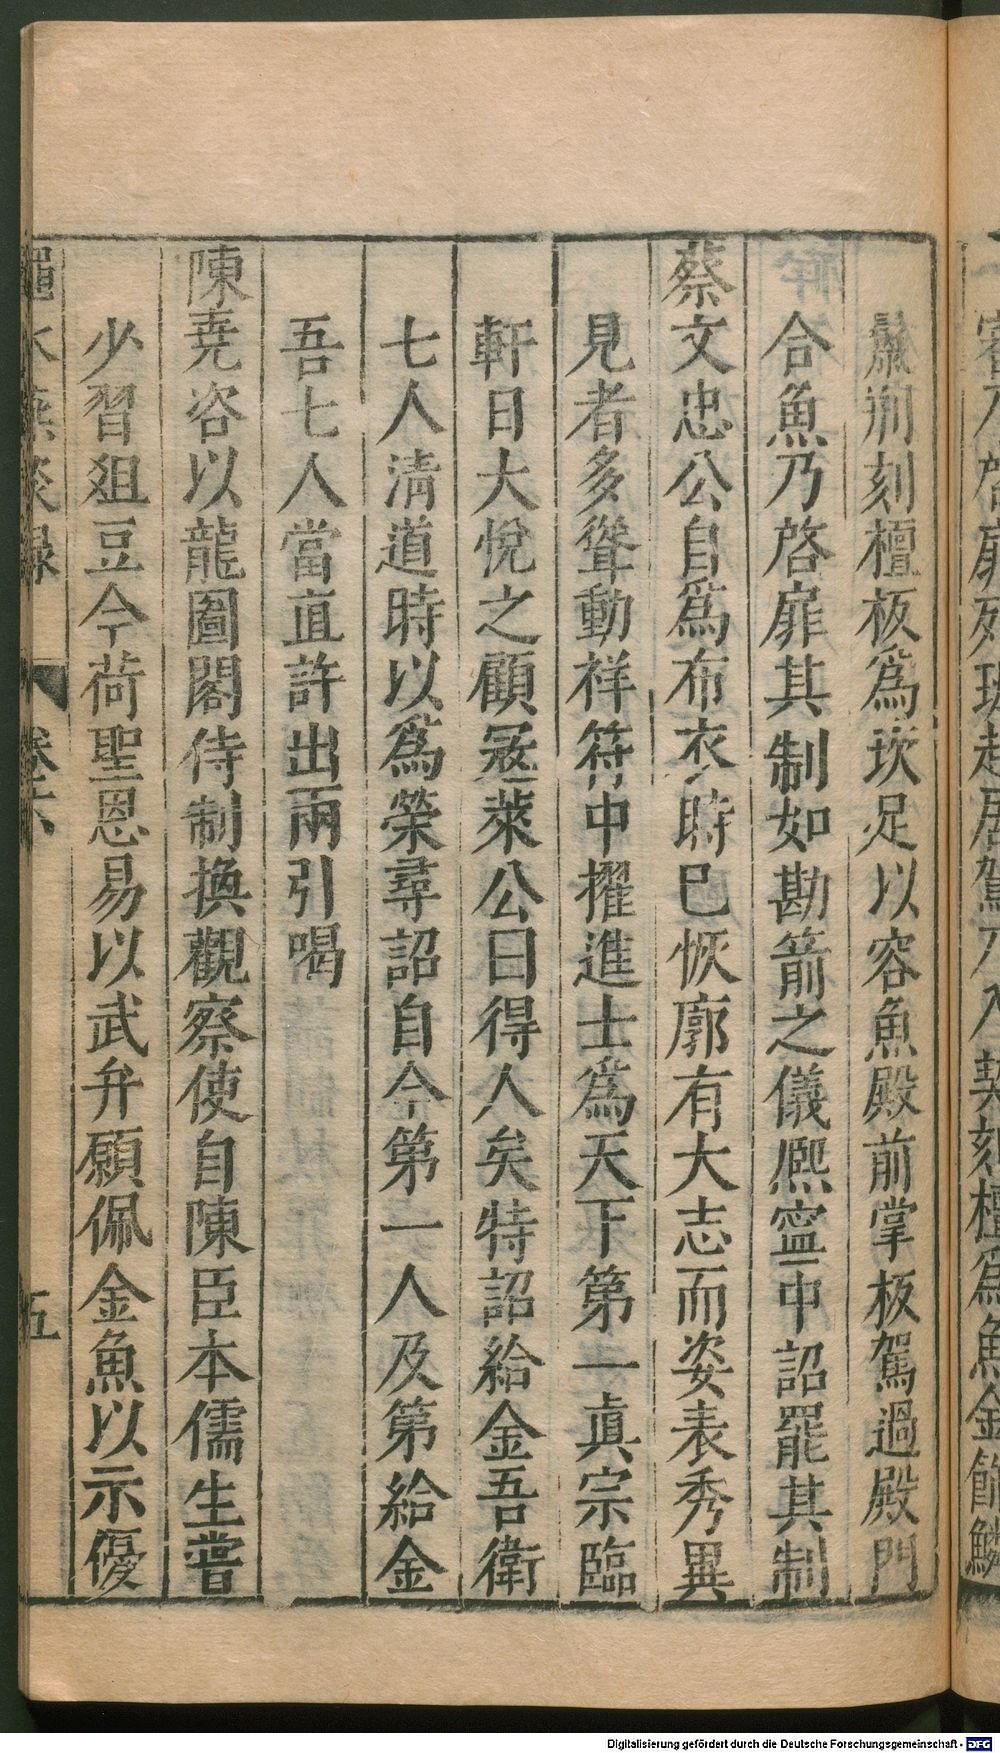 鬣刻檀板爲坎足以容魚殿前掌板駕過殿門
合魚乃啓扉其制如勘箭之儀熈寧中詔罷其制
蔡文忠公自爲布衣時巳恢廓有大志而姿表秀異
見者多聳動祥符中擢進士爲天下第一眞宗臨
軒日大悅之顧冦萊公曰得人矣特詔給金吾衛
七人清道時以爲榮尋詔自今第一人及第給金
吾七人當直許出兩引喝
陳堯咨以龍圖閣侍制換觀察使自陳臣本儒生嘗
少習俎豆今荷聖恩易以武弁願佩金魚以示優
澠水燕談錄 卷六 五
Digitalisierung gefördert durch die Deutsche Forschungsgemeinschaft - DFG